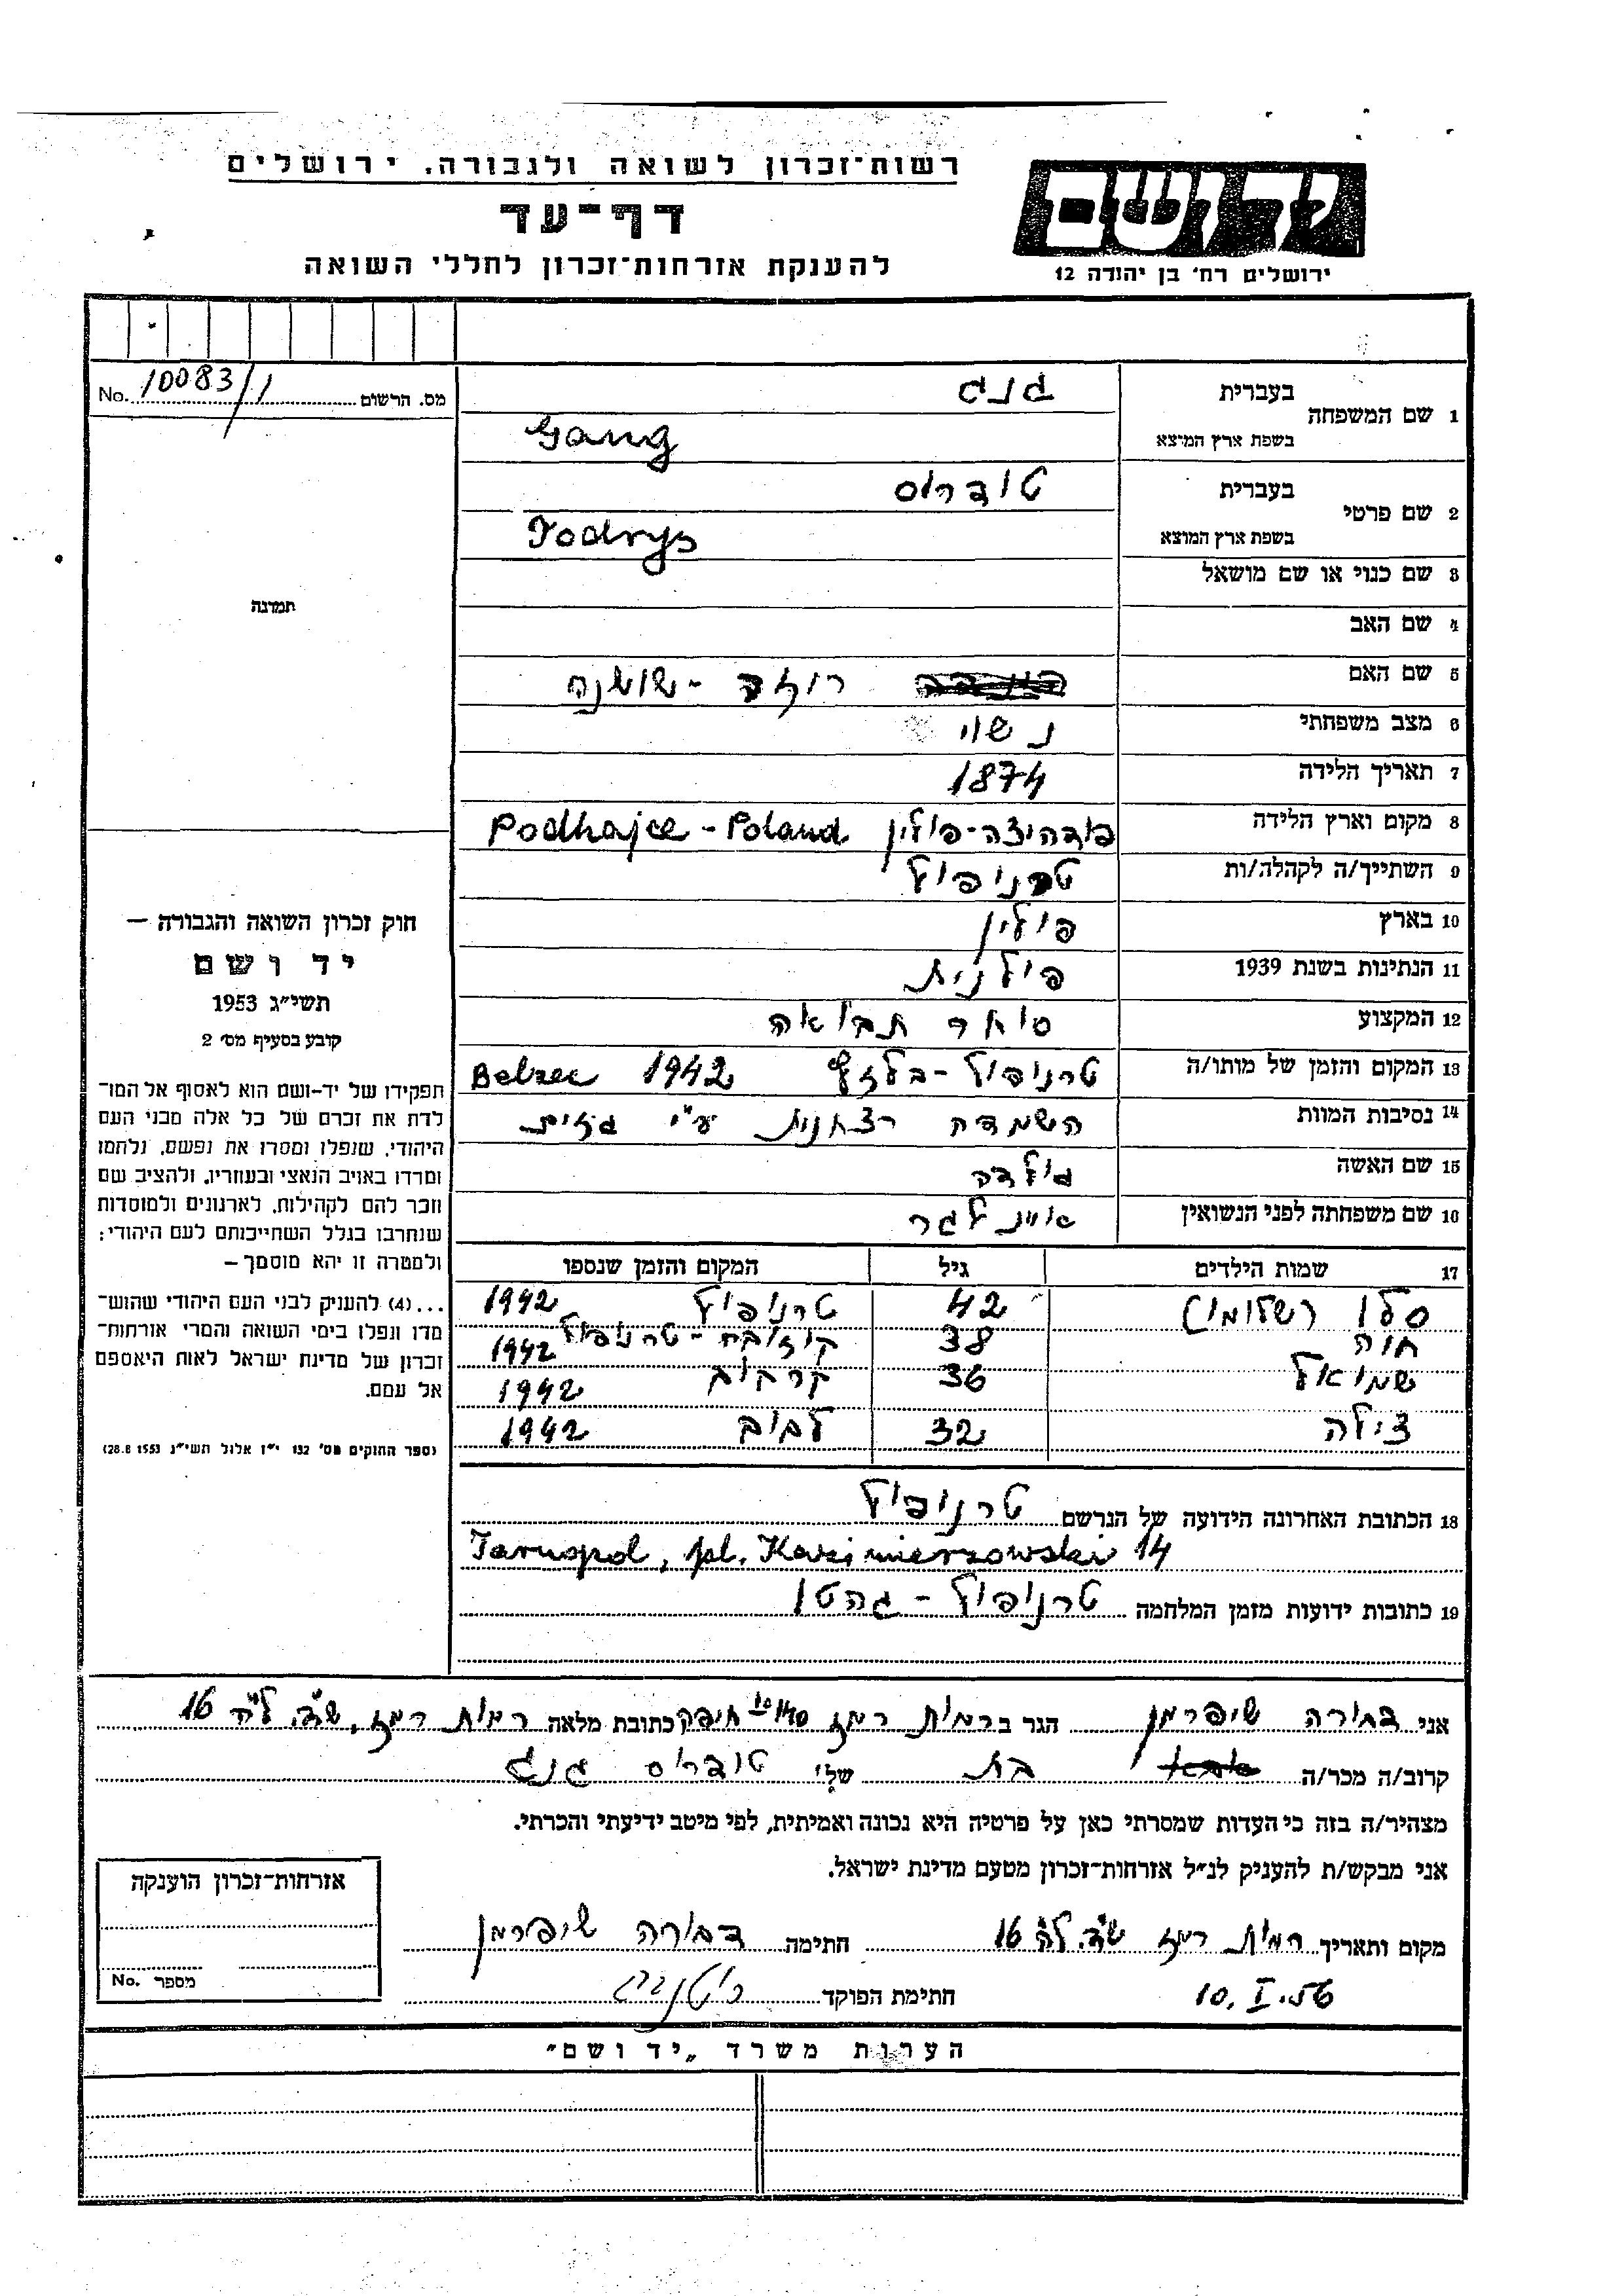 רשות־זכרון לשואה ולגבורה. ירושלים
דף־עד
להענקת אזרחות־זכרון לחללי השואה
יד ושם
ירושלים רח׳ בן יהודה 12
מס. הרשום 10083/1 No.
1 שם המשפחה
בעברית גנג
בשפת ארץ המוצא Gang
2 שם פרטי
בעברית טודרוס
בשפת ארץ המוצא Todrys
3 שם כנוי או שם מושאל
4 שם האב
5 שם האם רוזה - שושנה
6 מצב משפחתי נשוי
7 תאריך הלידה 1874
8 מקום וארץ הלידה פודהיצה - פולין Podhajce - Poland
9 השתייך/ה לקהלה/ות טרנופול
10 בארץ פולין
11 הנתינות בשנת 1939 פולנית
12 המקצוע סוחר תבואה
13 המקום והזמן של מותו/ה טרנופול - בלזץ Belzec 1942
14 נסיבות המוות השמדה רצחנית ע"י גזים
15 שם האשה גולדה
16 שם משפחתה לפני הנשואין
17 שמות הילדים גיל המקום והזמן שנספו
סלו (שלומו) 42 טרנופול 1942
חוה 38 קוזובה - טרנופול 1942
שמואל 36 קרקוב 1942
צילה 32 לבוב 1942
18 הכתובת האחרונה הידועה של הנרשם טרנופול
Tarnopol, pl. Kazimierzowski 14
19 כתובות ידועות מזמן המלחמה טרנופול - גהטו
תמונה
חוק זכרון השואה והגבורה —
יד ושם
תשי״ג 1953
קובע בסעיף מס׳ 2
תפקידו של יד־ושם הוא לאסוף אל המו־
לדת את זכרם של כל אלה מבני העם
היהודי, שנפלו ומסרו את נפשם, נלחמו
ומרדו באויב הנאצי ובעוזריו, ולהציב שם
וזכר להם לקהילות, לארגונים ולמוסדות
שנחרבו בגלל השתייכותם לעם היהודי:
ולמטרה זו יהא מוסמך —
...(4) להעניק לבני העם היהודי שהוש־
מדו ונפלו בימי השואה והמרי אזרחות־
זכרון של מדינת ישראל לאות היאספם
אל עמם.
(ספר החוקים מס׳ 132 י״ז אלול תשי״ג 28.8.1953)
אני דבורה שיפרמן הגר ב רמות רמז חיפה כתובת מלאה רמות רמז, שד. ל"ה 16
קרוב/ה מכר/ה בת של טודרוס גנג
מצהיר/ה בזה כי העדות שמסרתי כאן על פרטיה היא נכונה ואמיתית, לפי מיטב ידיעתי והכרתי.
אני מבקש/ת להעניק לנ״ל אזרחות־זכרון מטעם מדינת ישראל.
מקום ותאריך רמות רמז שד. ל"ה 16 חתימה דבורה שיפרמן
10.I.56 חתימת הפוקד
אזרחות־זכרון הוענקה
מספר No.
הערות משרד „יד ושם״